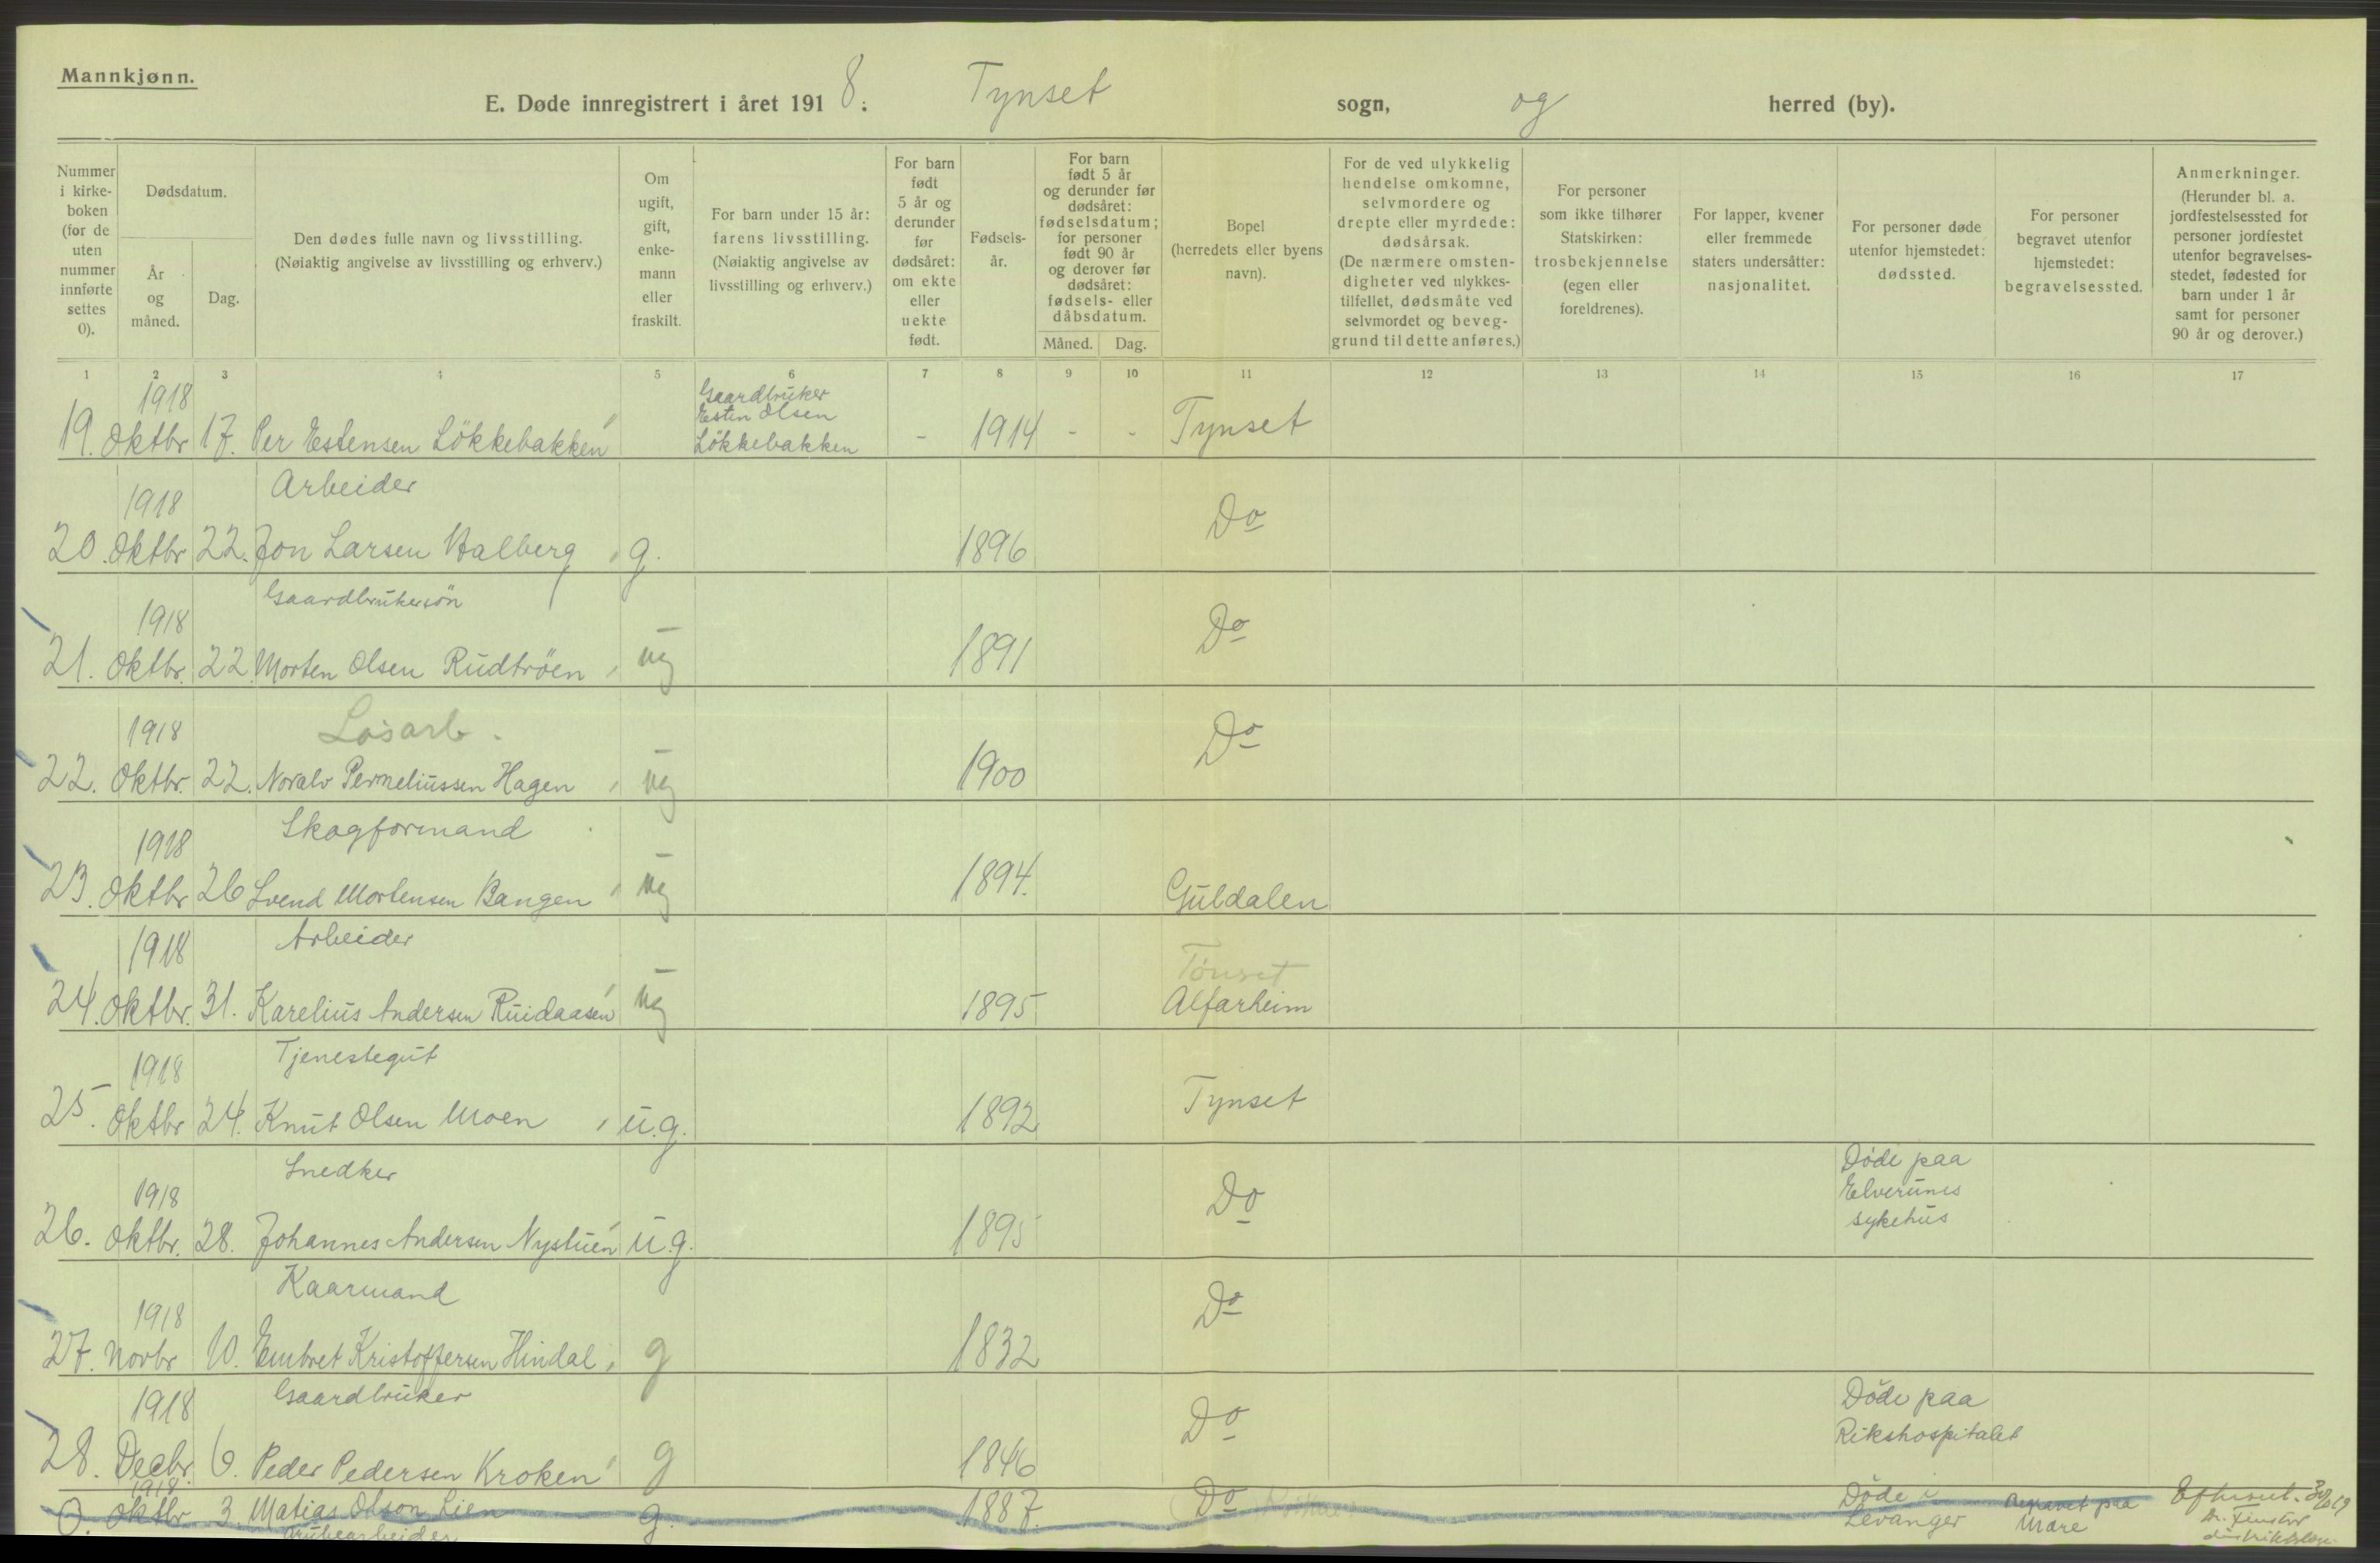 Mannkjønn.
E. Døde innregistrert i året 1918. Tynset sogn, og herred (by).
Nummer i kirke-boken (for de uten nummer innførte settes 0).
Dødsdatum.
År og måned.
Dag.
Den dødes fulle navn og livsstilling.
(Nøiaktig angivelse av livsstilling og erhverv.)
Om ugift, gift, enke-mann eller fraskilt.
For barn under 15 år: farens livsstilling.
(Nøiaktig angivelse av livsstilling og erhverv.)
For barn født 5 år og derunder før dødsåret: om ekte eller uekte født.
Fødsels-år.
For barn født 5 år og derunder før dødsåret: fødselsdatum; for personer født 90 år og derover før dødsåret: fødsels- eller dåbsdatum.
Måned.
Dag.
Bopel
(herredets eller byens navn).
For de ved ulykkelig hendelse omkomne, selvmordere og drepte eller myrdede: dødsårsak.
(De nærmere omsten-digheter ved ulykkes-tilfellet, dødsmåte ved selvmordet og beveg-grund til dette anføres.)
For personer som ikke tilhører Statskirken: trosbekjennelse (egen eller foreldrenes).
For lapper, kvener eller fremmede staters undersåtter: nasjonalitet.
For personer døde utenfor hjemstedet: dødssted.
For personer begravet utenfor hjemstedet: begravelsessted.
Anmerkninger.
(Herunder bl. a. jordfestelsessted for personer jordfestet utenfor begravelses-stedet, fødested for barn under 1 år samt for personer 90 år og derover.)
1 2 3 4 5 6 7 8 9 10 11 12 13 14 15 16 17
1918 Gaardbruker
Esten Olsen
19. Oktbr 17. Per Estensen Lökkebakken Lökkebakken - 1914 - - Tynset
1918 Arbeider
20. Oktbr 22. Jon Larsen Halberg g. 1896 Do
1918 Gaardbrukersön
21. Oktbr. 22 Morten Olsen Rudtröen ug 1891 Do
1918 Løsarb.
22. Oktbr. 22. Noralv Permeliussen Hagen ug 1900 Do
1918 Skogformand
23. Oktbr 26 Svend Mortensen Bangen ug 1894. Guldalen
1918 Arbeider Tönset
24. Oktbr. 31. Karelius Andersen Ruidaasen ug 1895 Alfarheim
1918 Tjenestegut
25. Oktbr 24. Knut Olsen Moen u.g. 1892 Tynset
1918 Snedker Døde paa
Elverums
sykehus
26. Oktbr. 28. Johannes Andersen Nystuen u.g. 1895 Do
1918 Kaarmand
27. Novbr 10. Embret Kristoffersen Hindal g 1832 Do
1918 Gaardbruker Döde paa
Rikshospitalet
28. Decbr. 6. Peder Pedersen Kroken g 1846 Do
1918
0. Oktbr 3. Matias Olson Lien g. 1887. Do Döde i Levanger Begravet paa Mare
Grubearbeider